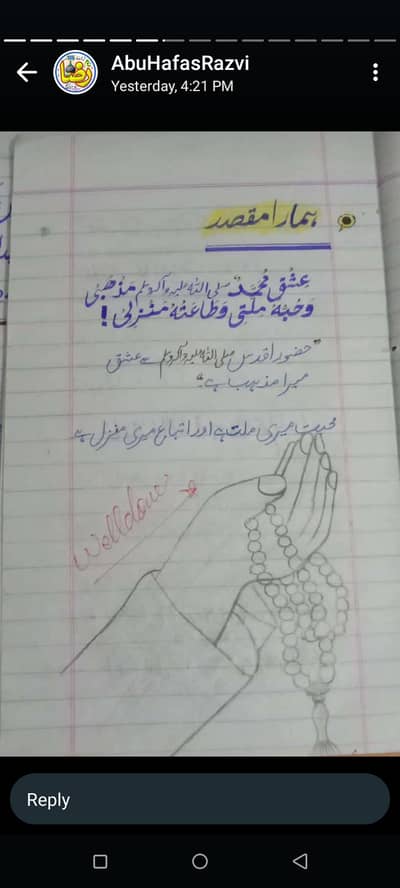 AbuHafasRazvi
Yesterday, 4:21 PM
ہمارا مقصد
عِشْقِ مُحَمَّدْ صلی اللہ علیہ وآلہ وسلم مَذْھَبِی
وَحُبُّهٗ مِلَّتِی وَطَاعَتُهٗ مَنْزِلِی !
"حضور اقدس صلی اللہ علیہ وآلہ وسلم سے عشق
میرا مذہب ہے"
محبت میری ملت ہے اور اتباع میری منزل ہے
Welldone
Reply